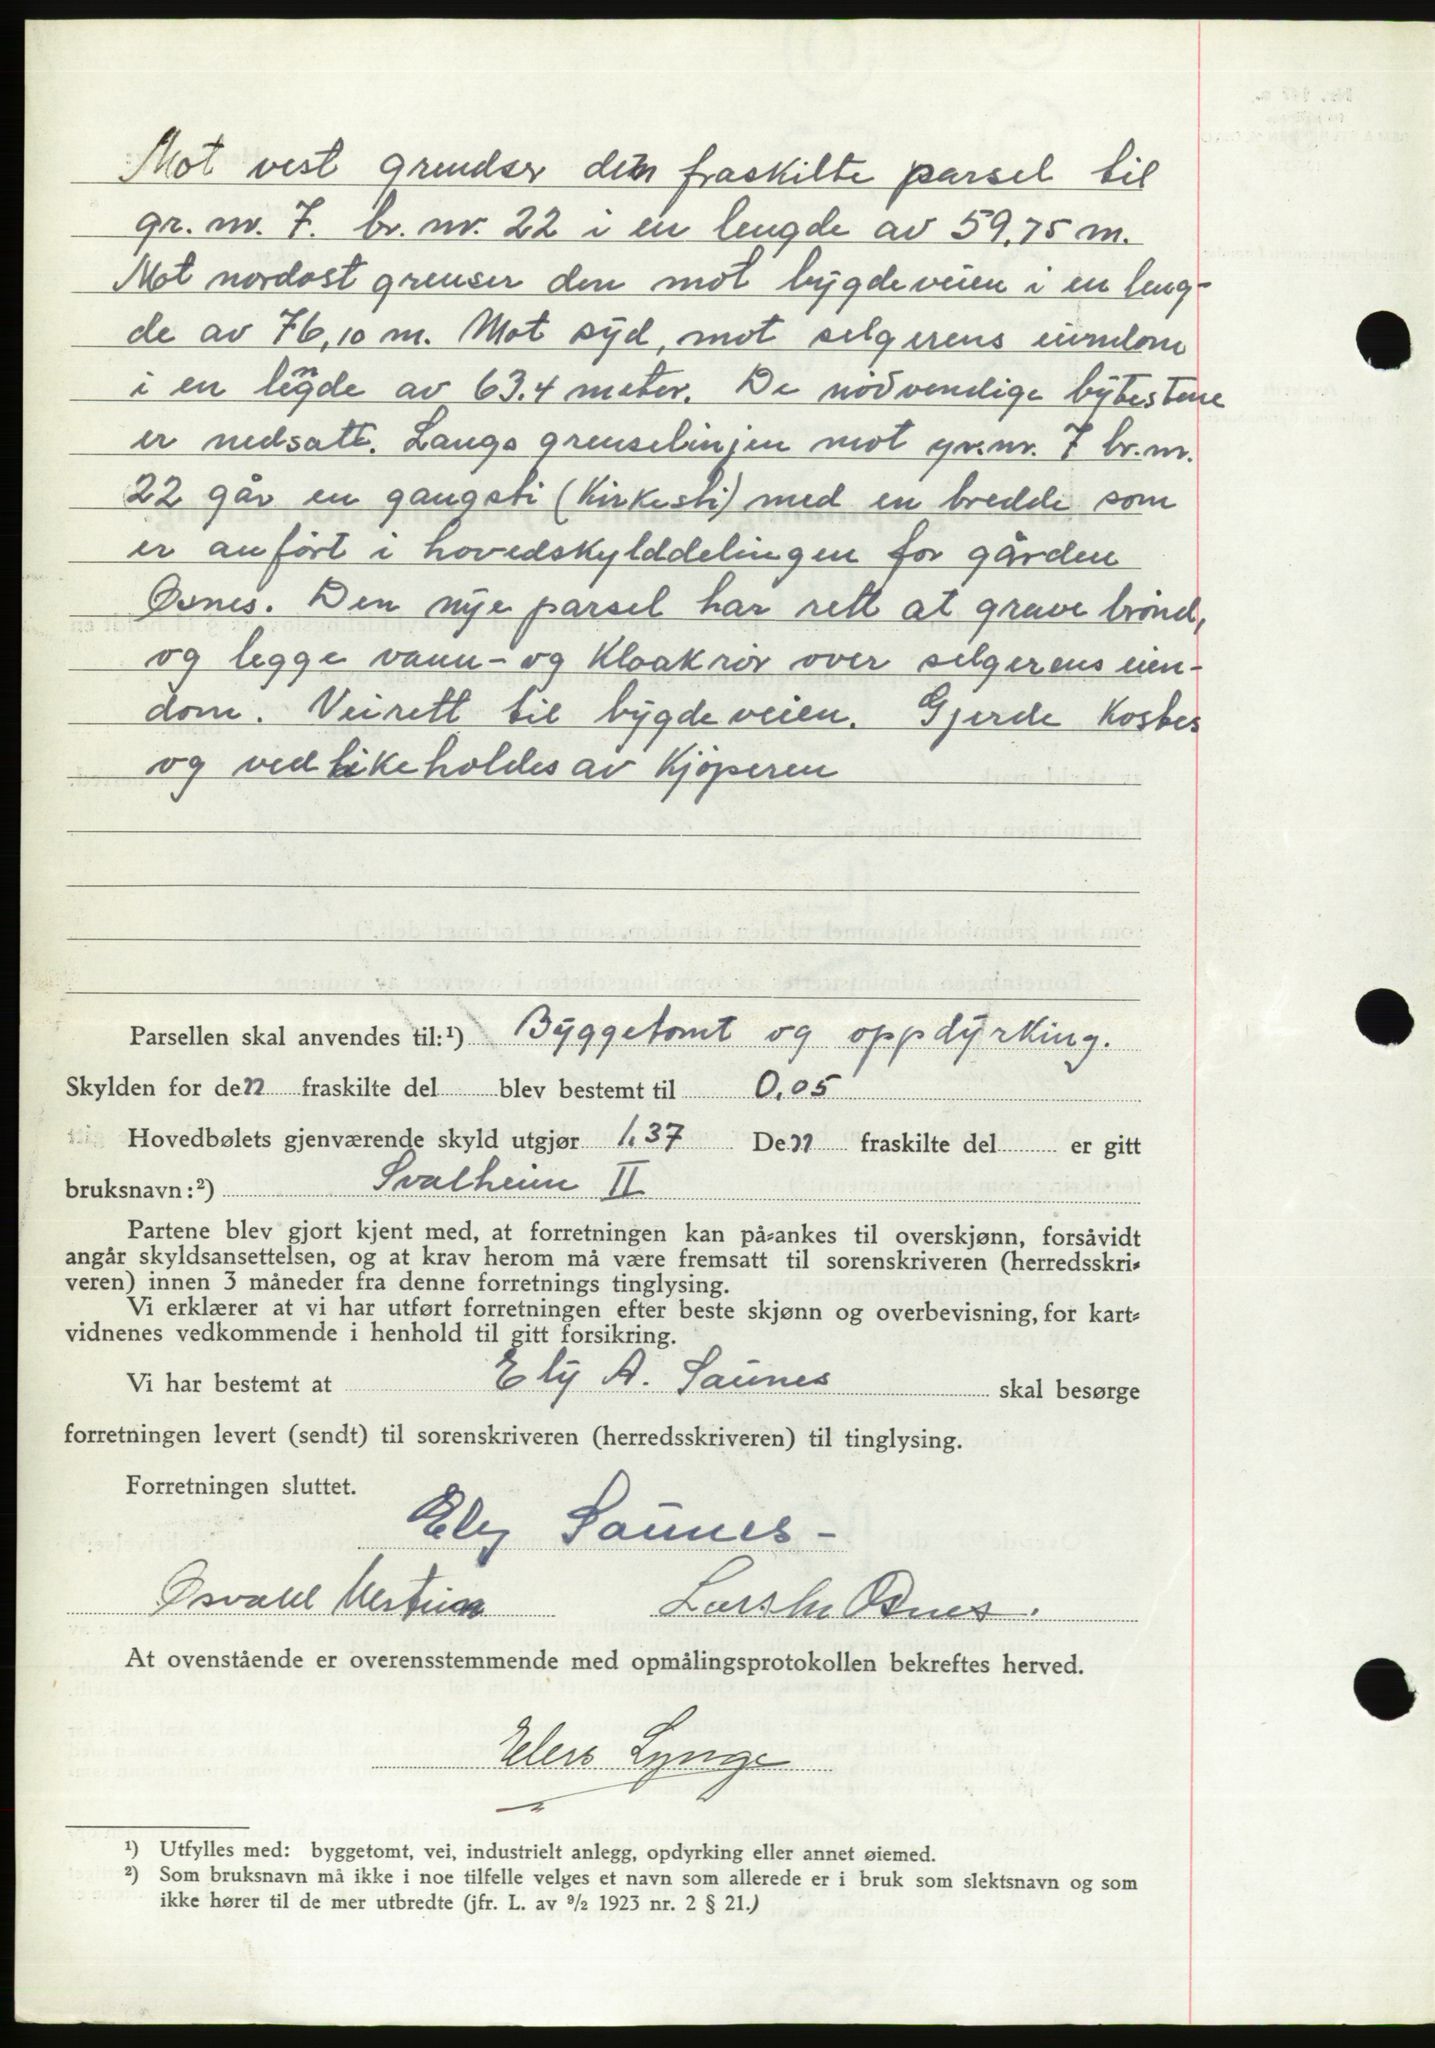 Mot vest grendser den fraskilte parsel til
gr. nr. 7. br. nr. 22 i en lengde av 59,75 m.
Mot nordost grenser den mot bygdeveien i en leng-
de av 76,10 m. Mot syd, mot selgerens eiendom
i en lengde av 63.4 meter. De nödvendige bytestene
er nedsatt. Langs grenselinjen mot gr. nr. 7 br. nr.
22 går en gangsti (Kirkesti) med en bredde som
er anfört i hovedskylddelingen for gården
Osnes. Den nye parsel har rett at grave brönd,
og legge vann- og Kloakrör over selgerens eien-
dom. Veirett til bygdeveien. Gjerde Kostes
og vedlikeholdes av Kjöperen
Parsellen skal anvendes til:¹) Byggetomt og oppdyrking.
Skylden for den fraskilte del blev bestemt til 0,05
Hovedbølets gjenværende skyld utgjør 1,37 Den fraskilte del er gitt
bruksnavn:²) Svalheim II
Partene blev gjort kjent med, at forretningen kan på-ankes til overskjønn, forsåvidt
angår skyldsansettelsen, og at krav herom må være fremsatt til sorenskriveren (herredsskri-
veren) innen 3 måneder fra denne forretnings tinglysing.
Vi erklærer at vi har utført forretningen efter beste skjønn og overbevisning, for kart-
vidnenes vedkommende i henhold til gitt forsikring.
Vi har bestemt at Ely A. Saunes skal besørge
forretningen levert (sendt) til sorenskriveren (herredsskriveren) til tinglysing.
Forretningen sluttet.
Ely Saunes -
Osvald Lars M Osnes.
At ovenstående er overensstemmende med opmålingsprotokollen bekreftes herved.
Elers Lynge
¹) Utfylles med: byggetomt, vei, industrielt anlegg, opdyrking eller annet øiemed.
²) Som bruksnavn må ikke i noe tilfelle velges et navn som allerede er i bruk som slektsnavn og som
ikke hører til de mer utbredte (jfr. L. av ⁹/₂ 1923 nr. 2 § 21.)